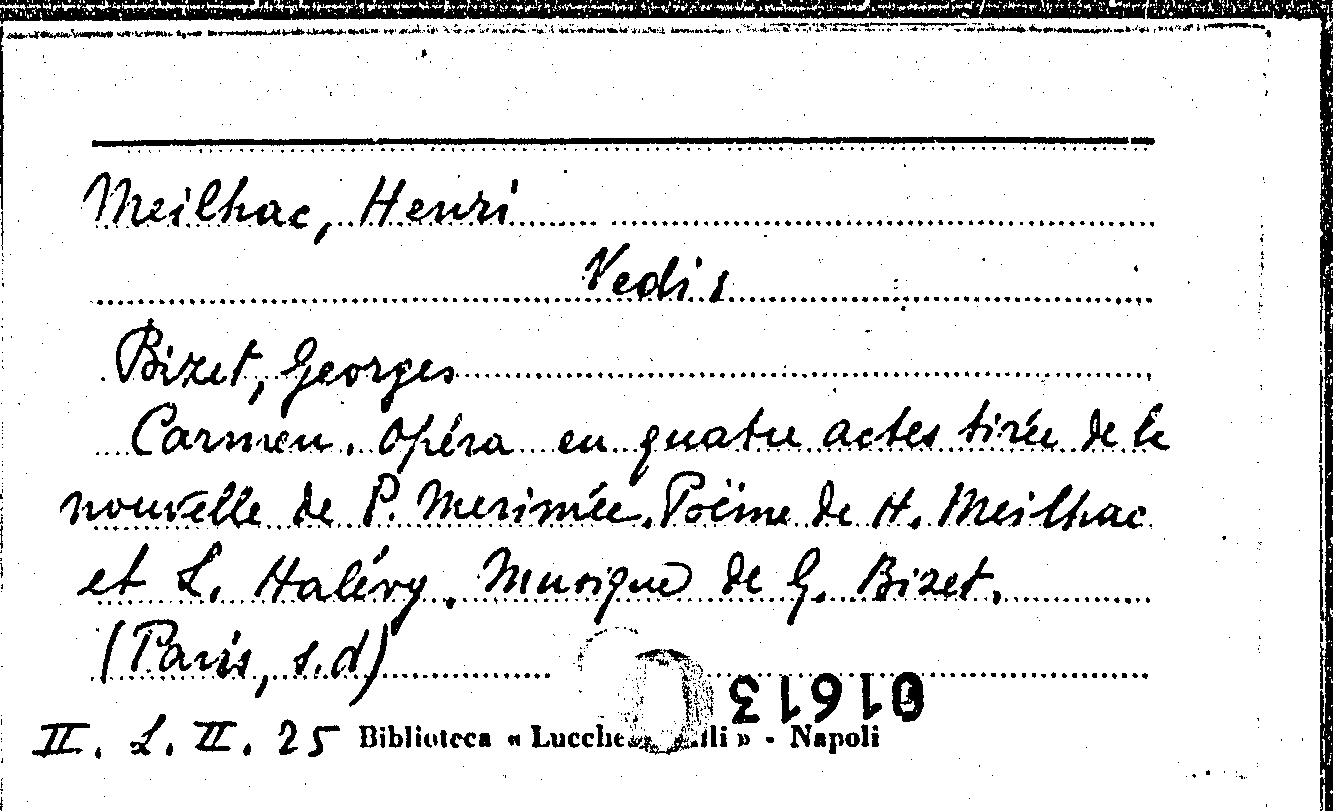 Meilhac, Henri
Vedi:
Bizet, Georges
Carmen. Opéra en quatre actes tirée de la
nouvelle de P. Merimée. Poëme de H. Meilhac
et L. Halévy. Musique de G. Bizet.
(Paris, s.d)
01613
II. L. II. 25 Biblioteca « Lucche lli » - Napoli